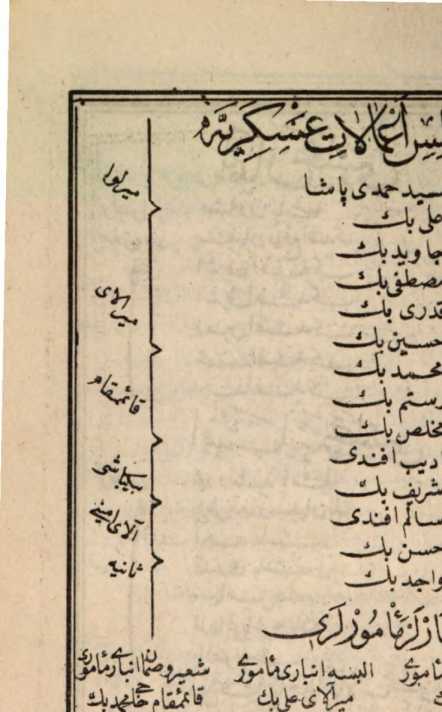 اعمالات عسكريه
سيد حمدى پاشا
على بك
جاويد بك
مصطفى بك
قدرى بك
حسين بك
محمد بك
رستم بك
مخلص بك
اديب افندى
شريف بك
سالم افندى
حسن بك
واجد بك
ميرلوا
ميرالاى
قائممقام
بيكباشى
آلاى امينى
ثانيه
مأمورلرى
مأمورى البسه انبارى مأمورى شعير وصمان انبارى مأمورى
ميرآلاى على بك قائممقام حاجى محمد بك